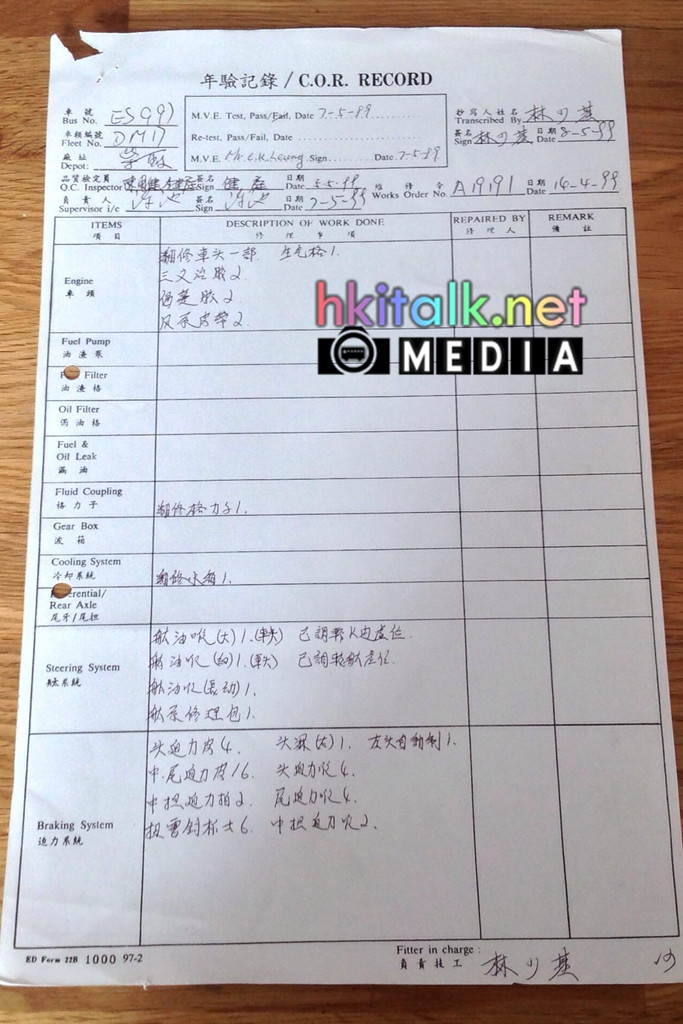 年驗記錄 / C.O.R. RECORD
車號
Bus No. ES991
車輛編號
Fleet No. DM17
廠址
Depot:
M.V.E. Test, Pass/Fail, Date 7-5-99
Re-test, Pass/Fail, Date
M.V.E. Mr. C.K. Leung Sign Date 7-5-99
抄寫人姓名
Transcribed By 林少基
簽名 日期
Sign 林少基 Date 8-5-99
品質檢定員 簽名 日期
Q.C. Inspector Sign Date 5-5-99
維修令 日期
Works Order No. A19191 Date 16-4-99
負責人 簽名 日期
Supervisor i/c Sign Date 7-5-99
ITEMS DESCRIPTION OF WORK DONE REPAIRED BY REMARK
項目 修理事項 修理人 備註
Engine
車頭
翻修車头一部 生气格1.
三叉治胶2
偈差胶2
风泵皮带2
hkitalk.net
MEDIA
Fuel Pump
油渣泵
Filter
油渣格
Oil Filter
偈油格
Fuel &
Oil Leak
漏油
Fluid Coupling
格力子 翻修格力子1.
Gear Box
波箱
Cooling System
冷却系統 翻修水箱1.
Rear Axle
尾牙/尾担
Steering System
軚系統
油喉(大)1.(軚) 已調較
油喉(細)1.(軚) 已調較
油喉
泵修理包1.
Braking System
迫力系統
头迫力皮4. 头 1. 左头自動制1.
中.尾迫力皮16. 头迫力喉4.
中担迫力拍2. 尾迫力喉4.
6. 中担迫力喉2.
ED Form 22B 1000 97-2
Fitter in charge :
負責技工 林少基